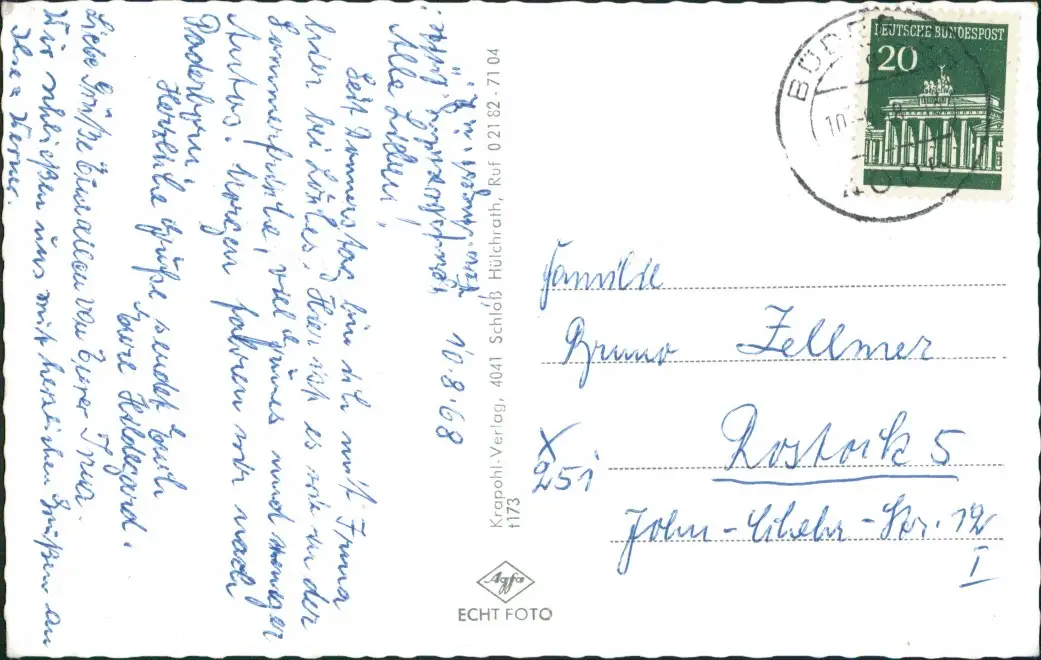 10.8.68
Alle Lieben!
Seit Donnerstag bin ich mit Irma
hier bei Löhles. Hier ist es wie in der
Sommerfrische, viel Grünes und weniger
Autos. Morgen fahren wir nach
Paderborn.
Herzliche Grüße sendet Euch
Eure Hildegard.
Liebe Grüße Euch allen von Eurer Irma.
Wir schließen uns mit herzlichen Grüßen an
Ilse u. Werner.
Krapohl-Verlag, 4041 Schloß Hülchrath, Ruf 0 21 82 - 71 04
t173
Agfa
ECHT FOTO
DEUTSCHE BUNDESPOST
20
Familie
Bruno Zellmer
X
251
Rostock 5
John-Schehr-Str. 12
I